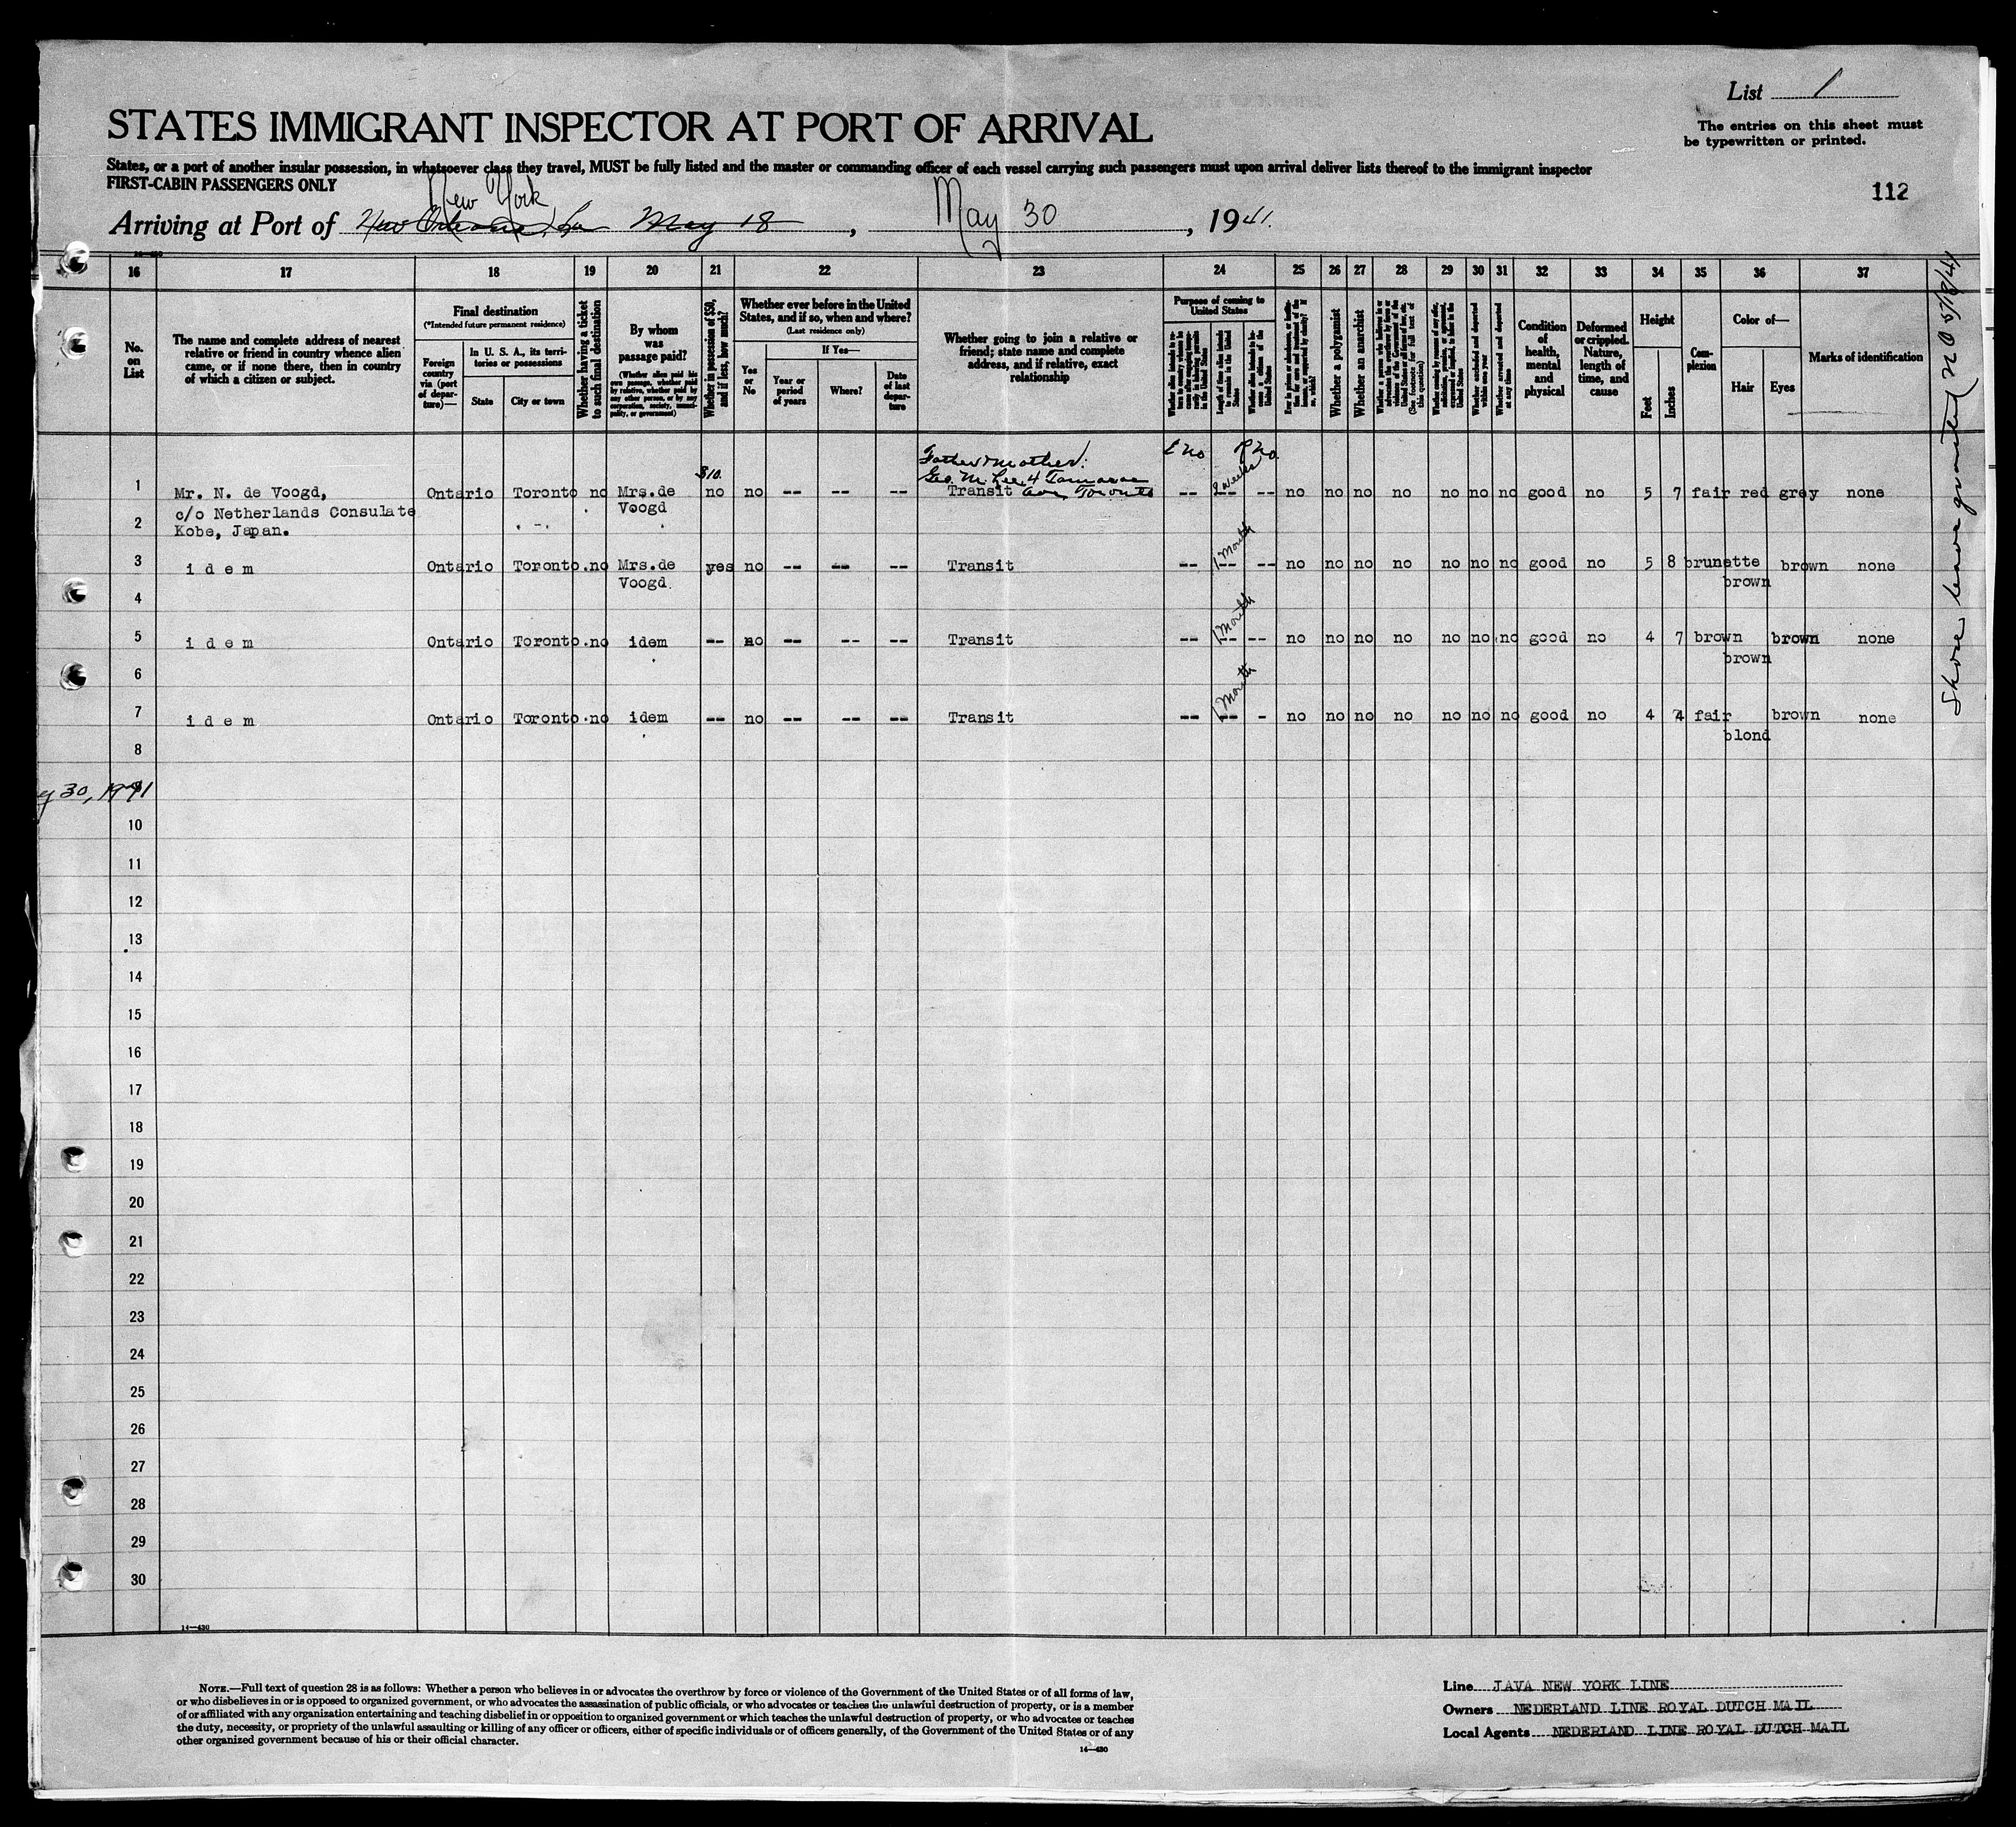 List 1
The entries on this sheet must
be typewritten or printed.
STATES IMMIGRANT INSPECTOR AT PORT OF ARRIVAL
States, or a port of another insular possession, in whatsoever class they travel, MUST be fully listed and the master or commanding officer of each vessel carrying such passengers must upon arrival deliver lists thereof to the immigrant inspector
FIRST-CABIN PASSENGERS ONLY
112
New York
Arriving at Port of New Orleans, La May 18, May 30, 1941.
14-430
16 17 18 19 20 21 22 23 24 25 26 27 28 29 30 31 32 33 34 35 36 37
No.
on
List
The name and complete address of nearest
relative or friend in country whence alien
came, or if none there, then in country
of which a citizen or subject.
Final destination
(*Intended future permanent residence)
Foreign
country
via (port
of depar-
ture)—
In U. S. A., its terri-
tories or possessions
State
City or town
Whether having a ticket
to such final destination
By whom
was
passage paid?
(Whether alien paid his
own passage, whether paid
by relative, whether paid by
any other person, or by any
corporation, society, munici-
pality, or government)
Whether in possession of $50,
and if less, how much?
Whether ever before in the United
States, and if so, when and where?
(Last residence only)
Yes
or
No
If Yes—
Year or
period
of years
Where?
Date
of last
depar-
ture
Whether going to join a relative or
friend; state name and complete
address, and if relative, exact
relationship
Purpose of coming to
United States
Whether alien intends to re-
turn to country whence he
came after engaging tempo-
rarily in laboring pursuits
in the United States
Length of time alien intends
to remain in the United
States
Whether alien intends to be-
come a citizen of the
United States
Whether a polygamist
Whether an anarchist
Whether excluded and deported
within one year
Whether arrested and deported
at any time
Condition
of
health,
mental
and
physical
Deformed
or crippled.
Nature,
length of
time, and
cause
Height
Feet
Inches
Com-
plexion
Color of—
Hair
Eyes
Marks of identification
Shore leave granted N O 5/18/41
Father & mother:
$10. Geo. M. Lee, 4
no no
1 Mr. N. de Voogd, Ontario Toronto no Mrs.de no no -- -- -- Transit Ave Toronto -- 2 weeks -- no no no no no no no good no 5 7 fair red grey none
c/o Netherlands Consulate Voogd
2 Kobe, Japan.
3 idem Ontario Toronto.no Mrs.de yes no -- -- -- Transit -- 1 Month -- no no no no no no no good no 5 8 brunette brown none
Voogd brown
4
5 idem Ontario Toronto.no idem -- no -- -- -- Transit -- 1 Month -- no no no no no no no good no 4 7 brown brown none
brown
6
7 idem Ontario Toronto.no idem -- no -- -- -- Transit -- 1 Month - no no no no no no no good no 4 4 fair brown none
blond
8
y 30, 1941
9
10
11
12
13
14
15
16
17
18
19
20
21
22
23
24
25
26
27
28
29
30
14-430
NOTE.—Full text of question 28 is as follows: Whether a person who believes in or advocates the overthrow by force or violence of the Government of the United States or of all forms of law,
or who disbelieves in or is opposed to organized government, or who advocates the assassination of public officials, or who advocates or teaches the unlawful destruction of property, or is a member
of or affiliated with any organization entertaining and teaching disbelief in or opposition to organized government or which teaches the unlawful destruction of property, or who advocates or teaches
the duty, necessity, or propriety of the unlawful assaulting or killing of any officer or officers, either of specific individuals or of officers generally, of the Government of the United States or of any
other organized government because of his or their official character.
14-430
Line JAVA NEW YORK LINE
Owners NEDERLAND LINE ROYAL DUTCH MAIL
Local Agents NEDERLAND LINE ROYAL DUTCH MAIL